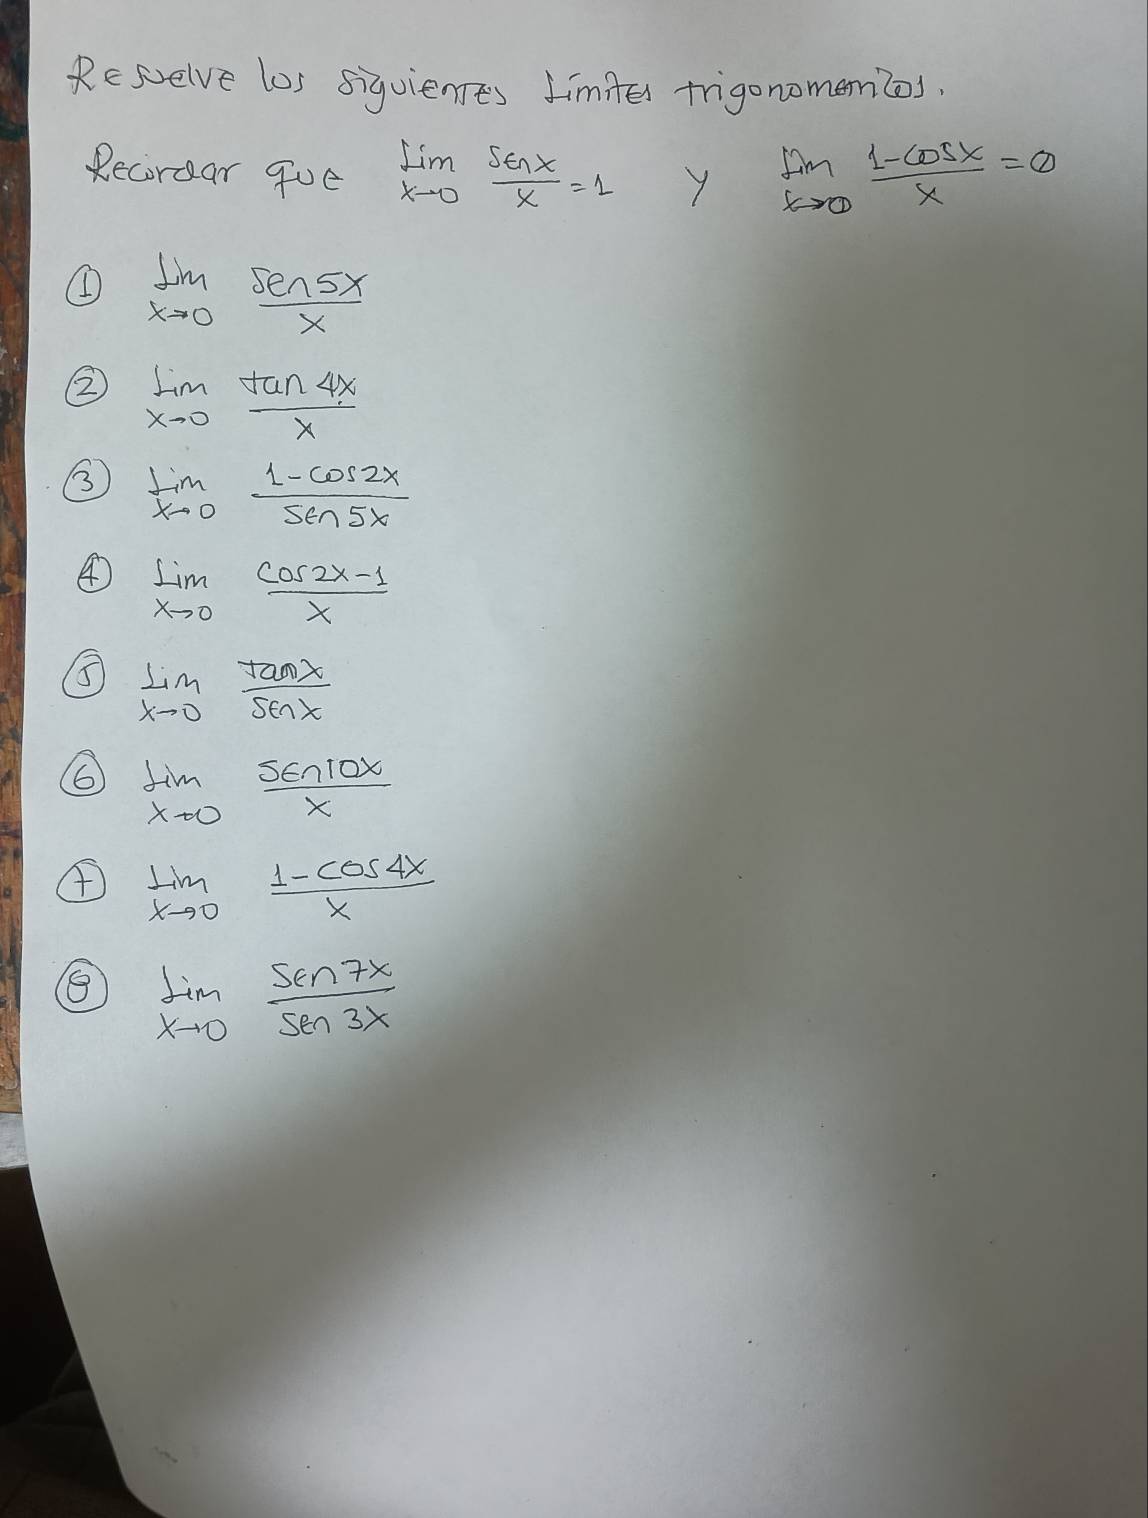 Resuelve los siguientes límites trigonometricos.
Recordar que lim x→0 senx/x = 1 y lim x→0 1-cosx/x = 0
① lim x→0 sen5x/x
② lim x→0 tan 4x/x
③ lim x→0 1-cos2x/sen 5x
④ lim x→0 cos2x-1/x
⑤ lim x→0 tanx/senx
⑥ lim x→0 sen10x/x
⑦ lim x→0 1-cos4x/x
⑧ lim x→0 sen7x/sen 3x